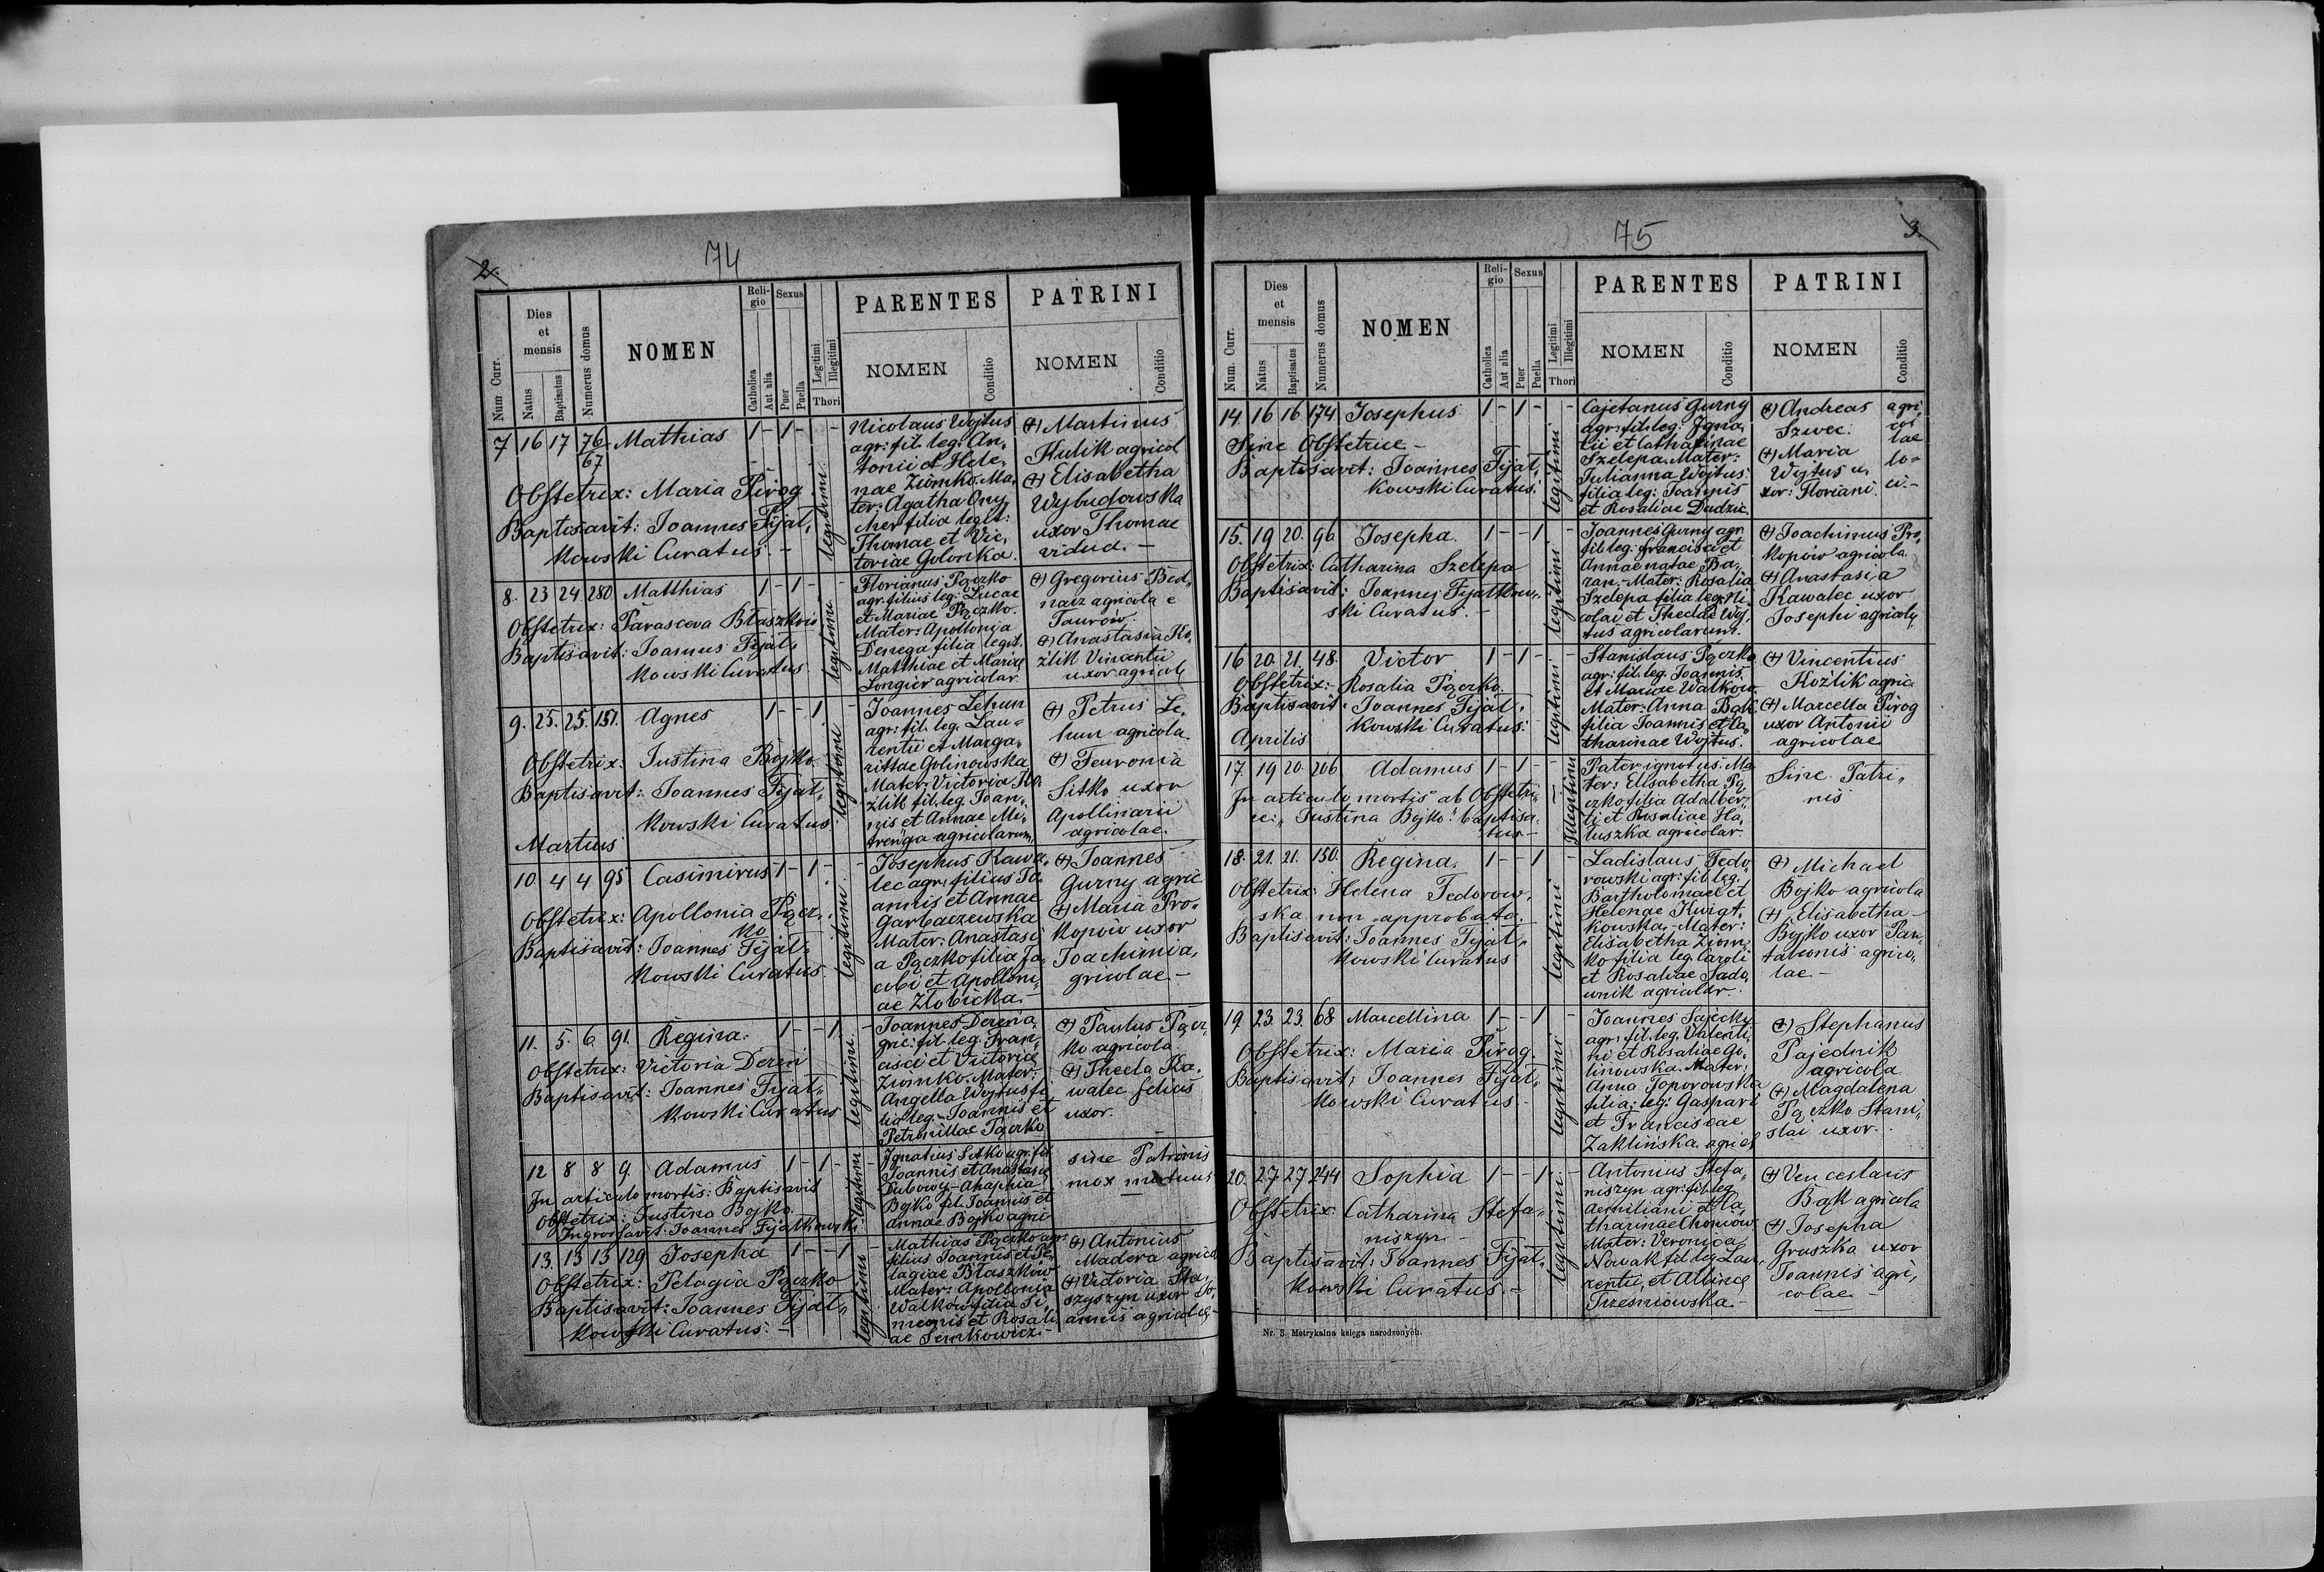 2.
74
Num Curr.
Dies et mensis
Natus
Baptisatus
Numerus domus
NOMEN
Religio
Catholica
Aut alia
Sexus
Puer
Puella
Legitimi
Illegitimi
Thori
PARENTES
NOMEN
Conditio
PATRINI
NOMEN
Conditio
7 16 17 76 Mathias 1 - 1 - -
67
Obstetrix: Maria Pirog
Baptisavit: Joannes Fijał„
kowski Curatus. -
legitimi.
Nicolaus Wojtus
agr. fil. leg. An„
tonii et Hele„
nae Ziomko. Ma„
ter: Agatha Ony„
cher filia legit:
Thomae et Vic„
toriae Golonka.
(+) Martinus
Hulik agricol
(+) Elisabetha
Wybudowska
uxor Thomae
vidua. -
8. 23 24 280 Matthias 1 - 1 - -
Obstetrix: Parasceva Błaszków
Baptisavit: Joannes Fijał„
kowski Curatus
legitimi
Florianus Pączko
agr. filius leg: Lucae
et Mariae Pączko.
Mater: Apollonja
Denega filia legit.
Matthiae et Mariae
Longier agricolar.
(+) Gregorius Bed„
narz agricola e
Taurów.
(+) Anastasia Ko„
źlik Vincentii
uxor agricolę
9. 25. 25. 151. Agnes 1 - - 1 -
Obstetrix: Justina Bojko.
Baptisavit: Joannes Fijał„
kowski Curatus.
legitimi
Martius
Joannes Lehun
agr. fil. leg. Lau=
rentii et Marga„
rittae Golinowska
Mater: Victoria Ko„
źlik fil. leg. Joan„
nis et Annae Mi„
trenga agricolarum
(+) Petrus Le„
hun agricola.
(+) Feuronia
Sitko uxor
Apollinarii
agricolae.
10 4 4 95 Casimirus 1 - 1 - -
Obstetrix: Apollonia Pącz„
ko
Baptisavit: Joannes Fijał„
kowski Curatus.
legitimi
Josephus Kawa„
lec agr: filius Jo„
annis et Annae
Garbaczewska
Mater: Anastasi„
a Pączko filia Ja„
cobi et Apolloni„
ae Złobicka. -
(+) Joannes
Gurny agric.
(+) Maria Pro„
kopów uxor
Joachimi a„
gricolae. -
11. 5. 6. 91. Regina. 1 - - 1 -
Obstetrix: Victoria Dereń
Baptisavit: Joannes Fijał„
kowski Curatus
legitimi.
Joannes Dereń a„
gric: fil. leg. Fran„
cisci et Victoriae
Ziomko. Mater:
Angella Wojtus fi„
lia leg: Joannis et
Petronillae Pączko
(+) Paulus Pącz„
ko agricola.
(+) Thecla Ka„
walec felicis
uxor.
12 8 8 9. Adamus 1 - 1 - -
In articulo mortis: Baptisavit
Obstetrix: Justina Bojko.
Ingrossavit: Joannes Fijałkowski.
legitimi
Ignatius Sitko agr. fil
Joannis et Anastasiae
Dubowy - Ahaphia
Bojko fil. Joannis et
Annae Bojko agric
sine Patrinis
mox
13. 13 13 129 Josepha 1 - - 1 -
Obstetrix: Pelagia Pączko
Baptisavit: Joannes Fijał„
kowski Curatus. -
legitimi
Mathias Pączko agr.
filius Joannis et Pe„
lagiae Błaszków
Mater: Apollonia
Walków filia Si„
meonis et Rosali„
ae Semkowicz. -
(+) Antonius
Madera agrico
(+) Victoria Sta„
szyszyn uxor Jo„
annis agricolę -
75
3.
Num. Curr.
Dies et mensis
Natus
Baptisatus
Numerus domus
NOMEN
Religio
Catholica
Aut alia
Sexus
Puer
Puella
Legitimi
Illegitimi
Thori
PARENTES
NOMEN
Conditio
PATRINI
NOMEN
Conditio
14. 16 16 174 Josephus 1 - 1 - -
Sine Obstetrice -
Baptisavit: Joannes Fijał„
kowski Curatus.
legitimi
Cajetanus Gurny
agr: fil. leg: Igna„
tii et Catharinae
Szelepa. Mater:
Julianna Wojtus
filia leg: Joannis
et Rosaliae Dudzic.
(+) Andreas
Szwec.
(+) Maria
Wojtus u„
xor: Floriani.
agri„
col
lae
lo=
ci. -
15. 19 20. 96 Josepha. 1 - - 1 -
Obstetrix: Catharina Szelepa
Baptisavit: Joannes Fijałkow„
ski Curatus. -
legitimi
Joannes Gurny agr.
fil. leg: Francisci et
Annae natae Ba„
ran. - Mater: Rosalia
Szelepa filia leg: Ni
colai et Theclae Woj„
tus agricolarum.
(+) Joachimus Pro„
kopów agricola.
(+) Anastasia
Kawalec uxor
Josephi agricolę
16 20. 21. 48. Victor 1 - 1 - -
Obstetrix: Rosalia Pączko.
Baptisavit: Joannes Fijał„
kowski Curatus.
legitimi.
Aprilis
Stanislaus Pączko
agr: fil. leg. Joannis
et Mariae Walkow.
Mater: Anna Bąk.
filia Joannis et Ca„
tharinae Wojtus.
(+) Vincentius
Koźlik agric.
(+) Marcella Pirog
uxor Antonii
agricolae
17. 19 20. 206 Adamus 1 - 1 - -
In articulo mortis ab Obstetri„
ce:„ Justina Bojko: baptisa„
tus -
Illegitimi
Pater ignotus: Ma„
ter: Elisabetha Pą„
czko filia Adalber„
ti et Rosaliae Ha„
łuszka agricolar.
Sine Patri„
nis
18. 21. 21. 150. Regina. 1 - - 1 -
Obstetrix: Helena Fedorow„
ska non approbata.
Baptisavit: Joannes Fijał„
kowski Curatus
legitimi
Ladislaus Fedo„
rowski agr: fil. leg.
Bartholomaei et
Helenae Kwiąt„
kowska - Mater:
Elisabetha Ziom„
ko filia leg. Caroli
et Rosaliae Sado„
wnik agricolar.
(+) Michael
Bojko agricola
(+) Elisabetha -
Bojko uxor Pan„
taleonis agrico„
lae. -
19 23. 23. 68 Marcellina 1 - - 1 -
Obstetrix: Maria Pirog.
Baptisavit: Joannes Fijał„
kowski Curatus. -
legitimi
Joannes Sajecki
agr: fil. leg. Valenti„
ni et Rosaliae Go„
linowska. Mater:
Anna Toporowska
filia: leg: Gaspari
et Franciscae
Zaklińska.
(+) Stephanus
Pajednik
agricola
(+) Magdalena
Pączko Stani„
slai uxor.
20. 27 27 244 Sophia 1 - - 1 -
Obstetrix: Catharina Stefa„
niszyn -
Baptisavit: Joannes Fijał„
kowski Curatus. -
legitimi.
Antonius Stefa„
niszyn agr: fil. leg.
Aemiliani et Ca„
tharinae Chomów.
Mater: Veronica
Nowak fil. leg. Lau„
rentii et Albinae
Trześniowska. -
(+) Venceslaus
Bąk agricola
(+) Josepha
Gruszka uxor
Joannis agri„
colae. -
Nr. 3. Metrykalna księga narodzonych.